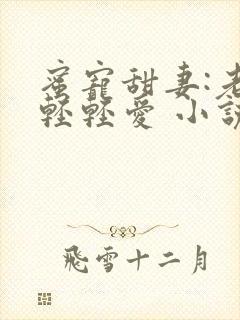 蜜寵甜妻:老
輕輕愛 小說
飛雪十二月